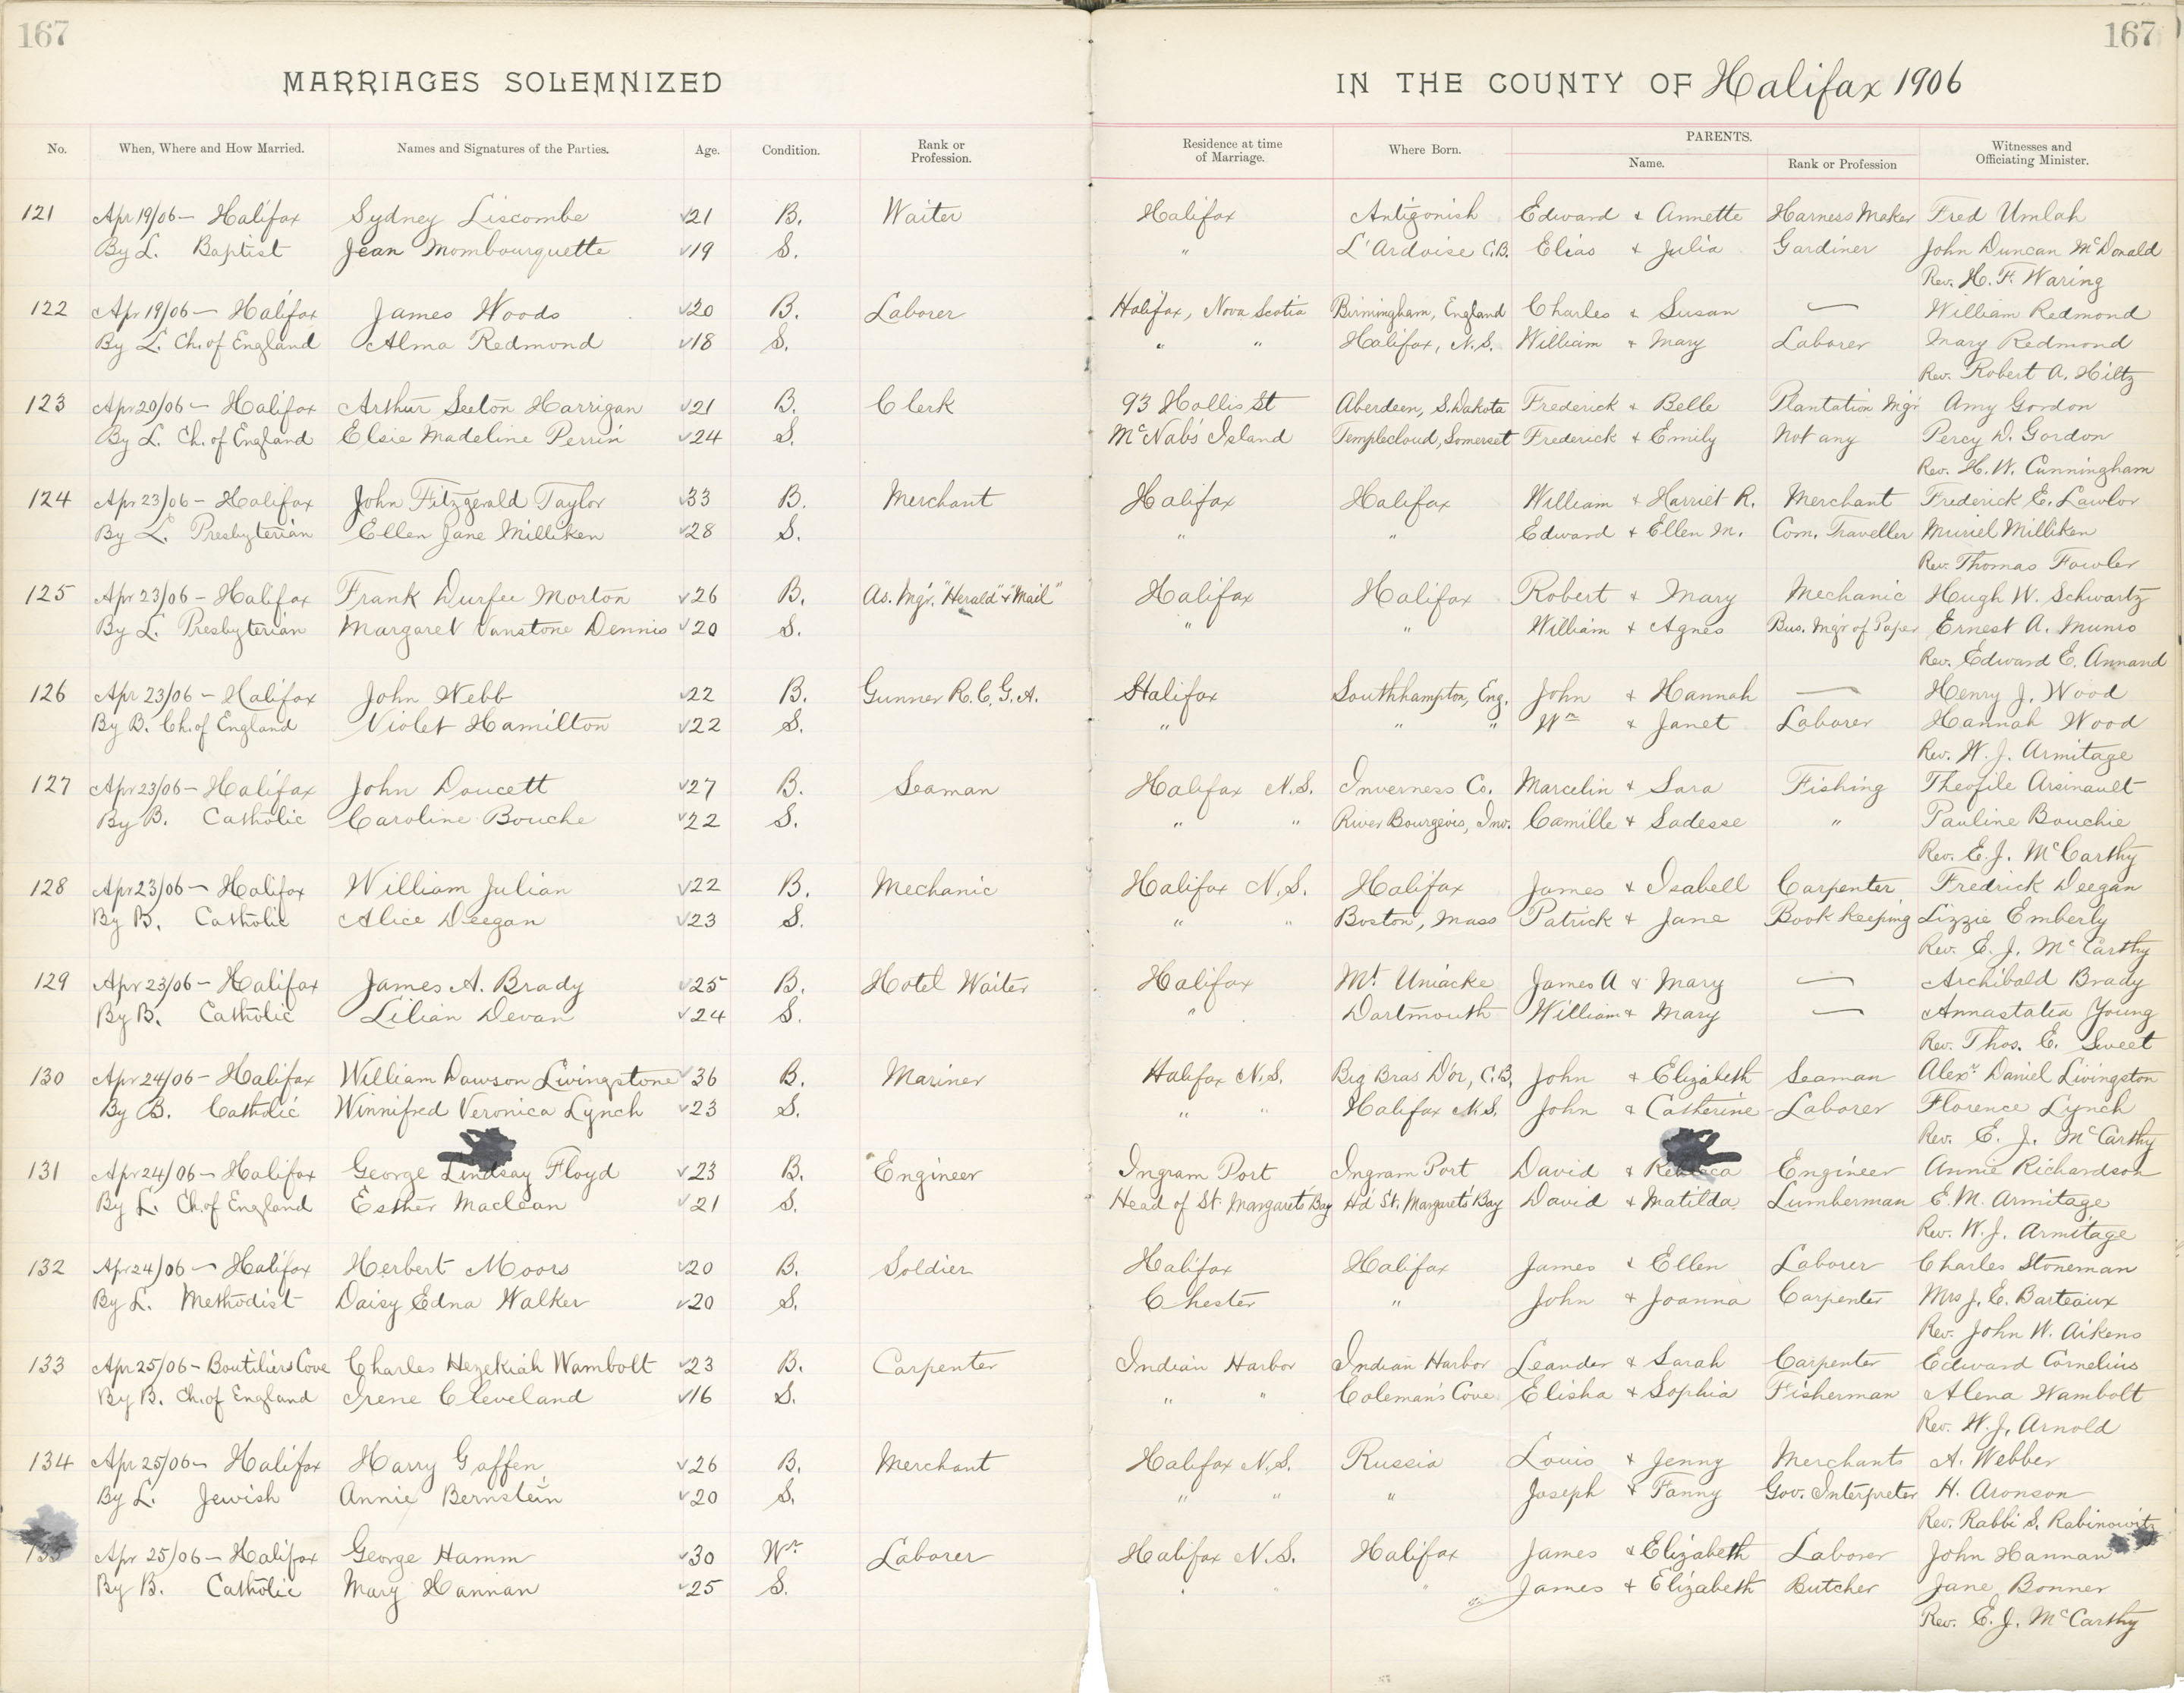 167
167
MARRIAGES SOLEMNIZED
IN THE COUNTY OF Halifax 1906
No. When, Where and How Married. Names and Signatures of the Parties. Age. Condition. Rank or Profession. Residence at time of Marriage. Where Born. PARENTS. Name. Rank or Profession Witnesses and Officiating Minister.
121 Apr 19/06 – Halifax Sydney Liscombe 21 B. Waiter Halifax Antigonish Edward + Annette Harness Maker Fred Umlah
By L. Baptist Jean Mombourquette 19 S. " L'Ardoise C.B. Elias + Julia Gardiner John Duncan McDonald
Rev. H. F. Waring
122 Apr 19/06 – Halifax James Woods 20 B. Laborer Halifax, Nova Scotia Birmingham, England Charles + Susan — William Redmond
By L. Ch. of England Alma Redmond 18 S. " " Halifax, N.S. William + Mary Laborer Mary Redmond
Rev. Robert A. Hiltz
123 Apr 20/06 – Halifax Arthur Seeton Harrigan 21 B. Clerk 93 Hollis St Aberdeen, S. Dakota Frederick + Belle Plantation Mgr Amy Gordon
By L. Ch. of England Elsie Madeline Perrin 24 S. McNab's Island Templecloud, Somerset Frederick + Emily Not any Percy D. Gordon
Rev. H. W. Cunningham
124 Apr 23/06 – Halifax John Fitzgerald Taylor 33 B. Merchant Halifax Halifax William + Harriet R. Merchant Frederick E. Lawlor
By L. Presbyterian Ellen Jane Milliken 28 S. " " Edward + Ellen M. Com. Traveller Muriel Milliken
Rev. Thomas Fowler
125 Apr 23/06 – Halifax Frank Durfee Morton 26 B. As. Mgr. "Herald" + "Mail" Halifax Halifax Robert + Mary Mechanic Hugh W. Schwartz
By L. Presbyterian Margaret Vanstone Dennis 20 S. " " William + Agnes Bus. Mgr of Paper Ernest A. Munro
Rev. Edward E. Annand
126 Apr 23/06 – Halifax John Webb 22 B. Gunner R.C.G.A. Halifax Southhampton, Eng. John + Hannah — Henry J. Wood
By B. Ch. of England Violet Hamilton 22 S. " " " Wm + Janet Laborer Hannah Wood
Rev. W. J. Armitage
127 Apr 23/06 – Halifax John Doucett 27 B. Seaman Halifax N.S. Inverness Co. Marcelin + Sara Fishing Theofile Arsinault
By B. Catholic Caroline Bouche 22 S. " " River Bourgeois, Inv. Camille + Sadesse " Pauline Bouchie
Rev. E. J. McCarthy
128 Apr 23/06 – Halifax William Julian 22 B. Mechanic Halifax N.S. Halifax James + Isabell Carpenter Fredrick Deegan
By B. Catholic Alice Deegan 23 S. " " Boston, Mass Patrick + Jane Book keeping Lizzie Emberly
Rev. E. J. McCarthy
129 Apr 23/06 – Halifax James A. Brady 25 B. Hotel Waiter Halifax Mt. Uniacke James A + Mary — Archibald Brady
By B. Catholic Lilian Devan 24 S. " Dartmouth William + Mary — Annastatia Young
Rev. Thos. E. Sweet
130 Apr 24/06 – Halifax William Dawson Livingstone 36 B. Mariner Halifax N.S. Big Bras D'or, C.B. John + Elizabeth Seaman Alexr Daniel Livingston
By B. Catholic Winnifred Veronica Lynch 23 S. " " Halifax N.S. John + Catherine Laborer Florence Lynch
Rev. E. J. McCarthy
131 Apr 24/06 – Halifax George Lindsay Floyd 23 B. Engineer Ingram Port Ingram Port David + Rebecca Engineer Annie Richardson
By L. Ch. of England Esther Maclean 21 S. Head of St. Margaret's Bay H'd St. Margaret's Bay David + Matilda Lumberman E. M. Armitage
Rev. W. J. Armitage
132 Apr 24/06 – Halifax Herbert Moors 20 B. Soldier Halifax Halifax James + Ellen Laborer Charles Stoneman
By L. Methodist Daisy Edna Walker 20 S. Chester " John + Joanna Carpenter Mrs J. E. Barteaux
Rev. John W. Aikens
133 Apr 25/06 – Boutiliers Cove Charles Hezekiah Wambolt 23 B. Carpenter Indian Harbor Indian Harbor Leander + Sarah Carpenter Edward Cornelius
By B. Ch. of England Irene Cleveland 16 S. " " Coleman's Cove Elisha + Sophia Fisherman Alena Wambolt
Rev. W. J. Arnold
134 Apr 25/06 – Halifax Harry Gaffen 26 B. Merchant Halifax N.S. Russia Louis + Jenny Merchants A. Webber
By L. Jewish Annie Bernstein 20 S. " " " Joseph + Fanny Gov. Interpreter H. Aronson
Rev. Rabbi S. Rabinowitz
135 Apr 25/06 – Halifax George Hamm 30 Wr. Laborer Halifax N.S. Halifax James + Elizabeth Laborer John Hannan
By B. Catholic Mary Hannan 25 S. " " " James + Elizabeth Butcher Jane Bonner
Rev. E. J. McCarthy